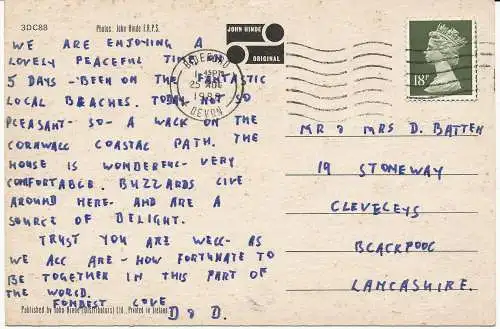 3DC88
Photos: John Hinde F.R.P.S.
JOHN HINDE
ORIGINAL
18P
BIDEFORD
25 AUG
1988
DEVON
WE ARE ENJOYING A
LOVELY PEACEFUL TIME OR
5 DAYS - BEEN ON THE FANTASTIC
LOCAL BEACHES. TODAY NOT SO
PLEASANT - SO - A WALK ON THE
CORNWALL COASTAL PATH. THE
HOUSE IS WONDERFUL - VERY
COMFORTABLE. BUZZARDS LIVE
AROUND HERE - AND ARE A
SOURCE OF DELIGHT.
TRUST YOU ARE WELL - AS
WE ALL ARE - HOW FORTUNATE TO
BE TOGETHER IN THIS PART OF
THE WORLD.
FONDEST LOVE
D & D.
MR & MRS D. BATTEN
19 STONEWAY
CLEVELEYS
BLACKPOOL
LANCASHIRE.
Published by John Hinde (Distributors) Ltd., Printed in Ireland